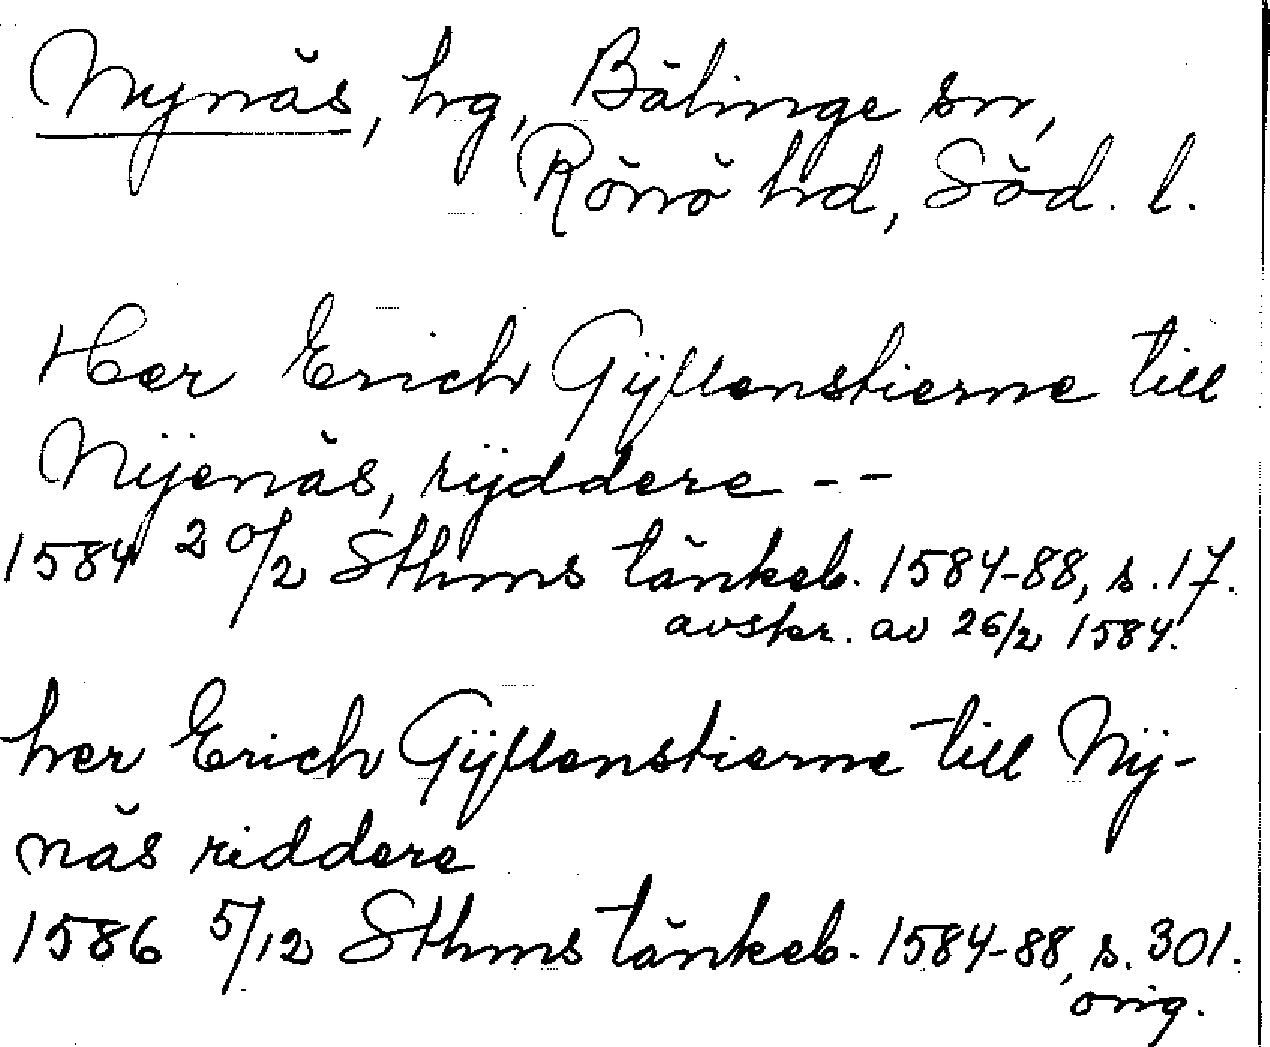 Nynäs, hg, Bälinge sn,
Rönö hd, Söd. l.
Her Erich Gÿllenstierne till
Nÿenäs, rÿddere - -
1584 20/2 Sthms tänkeb. 1584-88, s. 17.
avskr. av 26/2 1584.
her Erich Gÿllenstierne till Nÿ-
näs riddere
1586 5/12 Sthms tänkeb. 1584-88, s. 301.
orig.